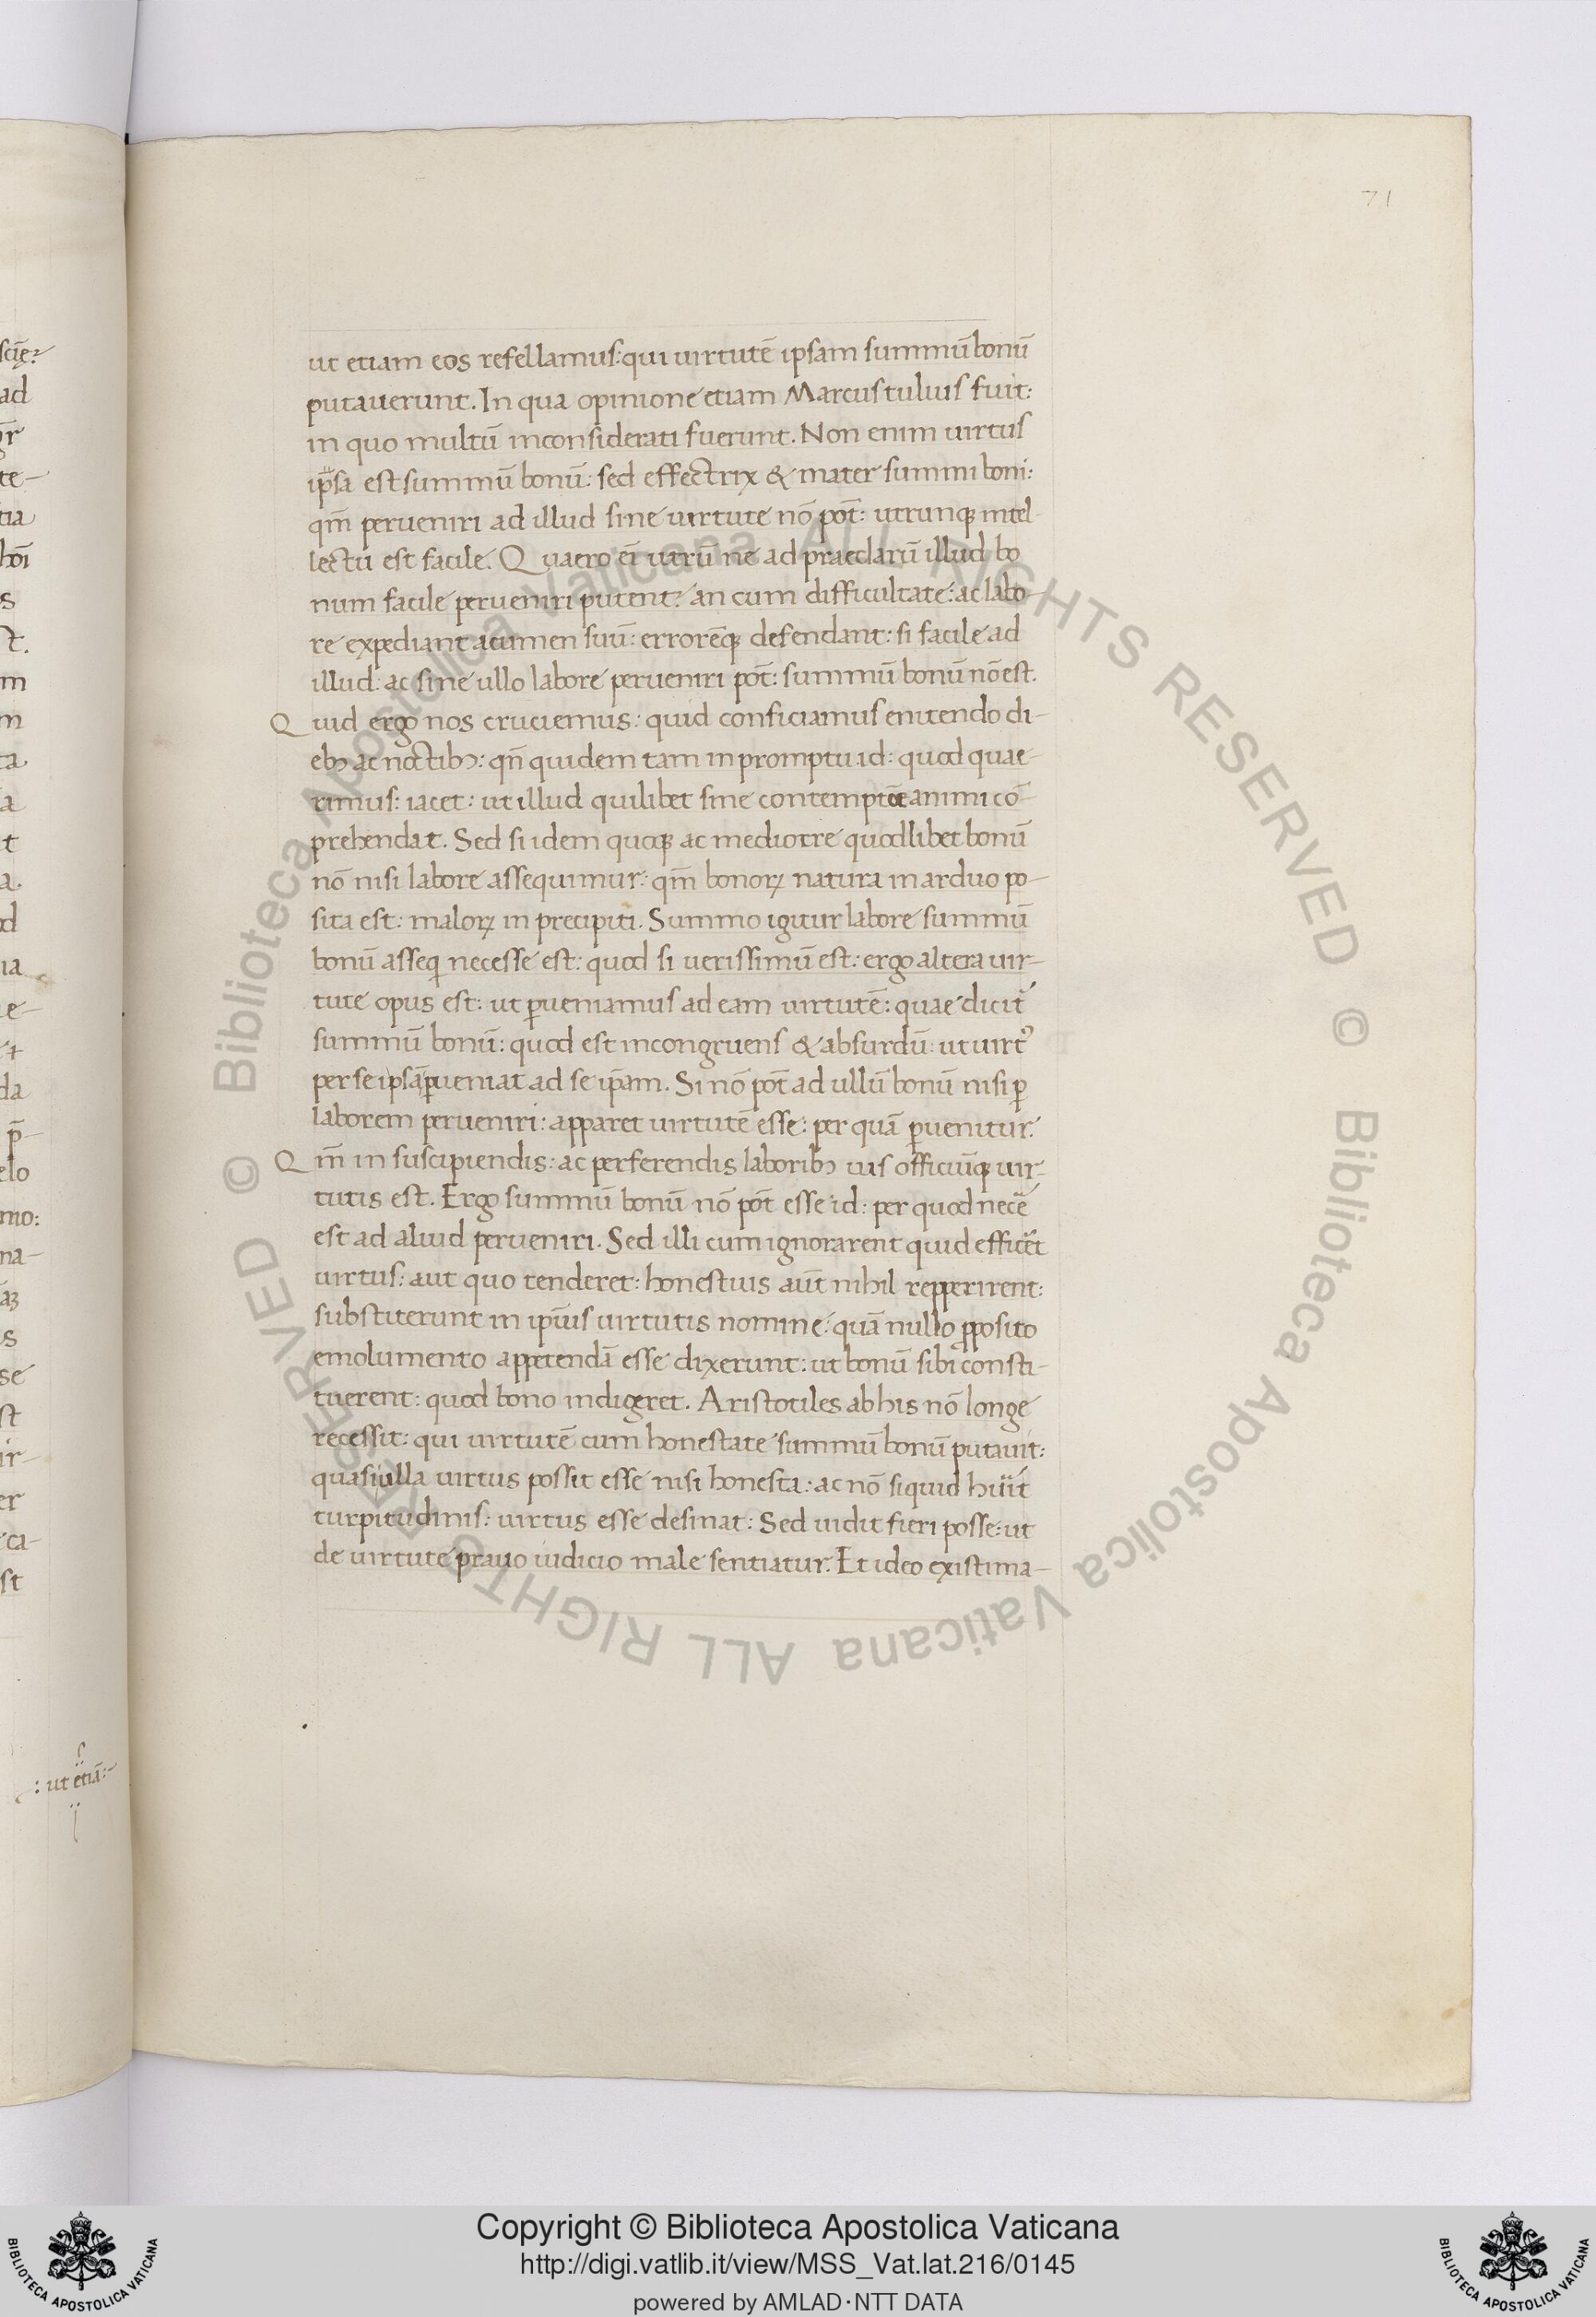 71
ut etiam eos refellamus: qui uirtutē ipsam summū bonū
putauerunt. In qua opinione etiam Marcus tulius fuit:
in quo multū inconsiderati fuerunt. Non enim uirtus
ip̄sa est summū bonū: sed effectrix & mater summi boni:
qm̄ perueniri ad illud sine uirtute nō pōt: utrunqꝫ intel-
lectū est facile. Quaero eī utrū ne ad praeclarū illud bo
num facile perueniri putent? an cum difficultate: ac labo-
re expediant acumen suū: errorēqꝫ defendant: si facile ad
illud: ac sine ullo labore perueniri pōt: summū bonū nō est.
Quid ergo nos cruciemus: quid conficiamus enitendo di-
ebꝫ ac noctibꝫ: qn̄ quidem tam in promptu id: quod quae-
rimus: iacet: ut illud quilibet sine animi cō-
prehendat. Sed si idem quoqꝫ ac mediocre quodlibet bonū
nō nisi labore assequimur: qm̄ bonoꝝ natura in arduo po-
sita est: maloꝝ in precipiti. Summo igitur labore summū
bonū asseqi necesse est: quod si uerissimū est: ergo altera uir-
tute opus est: ut ꝑueniamus ad eam uirtutē: quae dicit̄
summū bonū: quod est incongruens & absurdū: ut uirtꝰ
per se ipsā ꝑueniat ad se ip̄am. Si nō pōt ad ullū bonū nisi ꝑ
laborem perueniri: apparet uirtutē esse: per quā ꝑuenitur.
Qm̄ in suscipiendis: ac perferendis laboribꝫ uis officiūqꝫ uir-
tutis est. Ergo summū bonū nō pōt esse id: per quod necē
est ad aliud perueniri. Sed illi cum ignorarent quid efficēt
uirtus: aut quo tenderet: honestius aūt nihil repperirent:
substiterunt in ip̄ius uirtutis nomine: quā nullo ꝓposito
emolumento appetendā esse dixerunt: ut bonū sibi consti-
tuerent: quod bono indigeret. Aristotiles ab his nō longe
recessit: qui uirtutē cum honestate summū bonū putauit:
quasi ulla uirtus possit esse nisi honesta: ac nō siquid hūit
turpitudinis: uirtus esse desinat: Sed uidit fieri posse: ut
de uirtute prauo iudicio male sentiatur. Et ideo existima-
: ut etiā:
© Biblioteca Apostolica Vaticana ALL RIGHTS RESERVED © Biblioteca Apostolica Vaticana ALL RIGHTS RESERVED
Copyright © Biblioteca Apostolica Vaticana
http://digi.vatlib.it/view/MSS_Vat.lat.216/0145
powered by AMLAD·NTT DATA
BIBLIOTECA APOSTOLICA VATICANA
BIBLIOTECA APOSTOLICA VATICANA